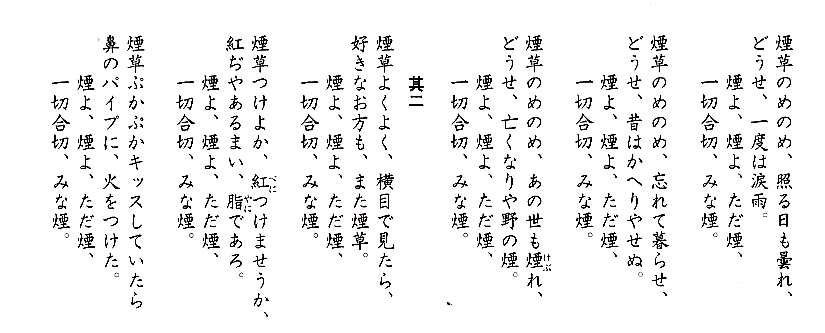 煙草のめのめ、照る日も曇れ、
どうせ、一度は涙雨。
煙よ、煙よ、ただ煙、
一切合切、みな煙。
煙草のめのめ、忘れて暮らせ、
どうせ、昔はかへりやせぬ。
煙よ、煙よ、ただ煙、
一切合切、みな煙。
煙草のめのめ、あの世も煙れ、
どうせ、亡くなりや野の煙。
煙よ、煙よ、ただ煙、
一切合切、みな煙。
其二
煙草よくよく、横目で見たら、
好きなお方も、また煙草。
煙よ、煙よ、ただ煙、
一切合切、みな煙。
煙草つけよか、紅つけませうか、
紅ぢやあるまい、脂であろ。
煙よ、煙よ、ただ煙、
一切合切、みな煙。
煙草ぷかぷかキッスしていたら
鼻のパイプに、火をつけた。
煙よ、煙よ、ただ煙、
一切合切、みな煙。